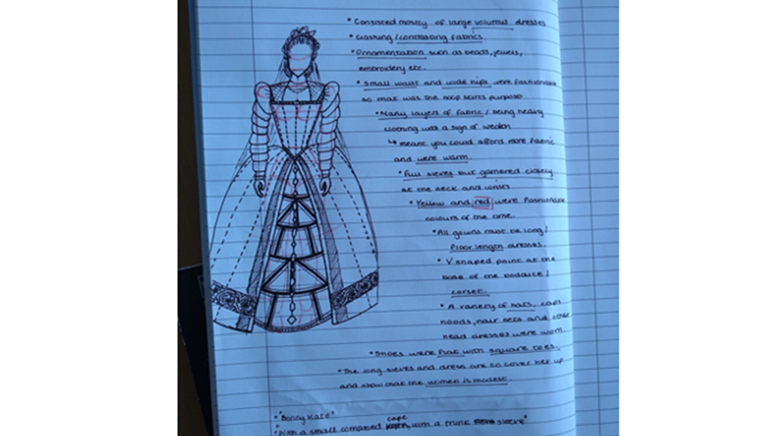 * Consisted mostly of large volumus dresses
* Clashing/contrasting fabrics
* Ornamentation such as beads, jewels,
embroidery etc.
* Small waist and wide hips were fashionable
so that was the hoop skirts purpose
* Many layers of fabric/ being heavy
clothing was a sign of wealth
↳ meant you could afford more fabric
and were warm.
* Full sleves but gathered closely
at the neck and wrists
* Yellow and red were fashionable
colours of the time.
* All gowns must be long/
floor length dresses.
* V shaped point at the
base of the bodice/
corset.
* A variety of hats, caps
hoods, hair nets and other
head dresses were worn.
* Shoes were flat with square toes.
* The long sleeves and dress are to cover her up
and show that the women is modest.
* "Bonny Kate"
cape
* "With a small compased with a trunk sleeve"